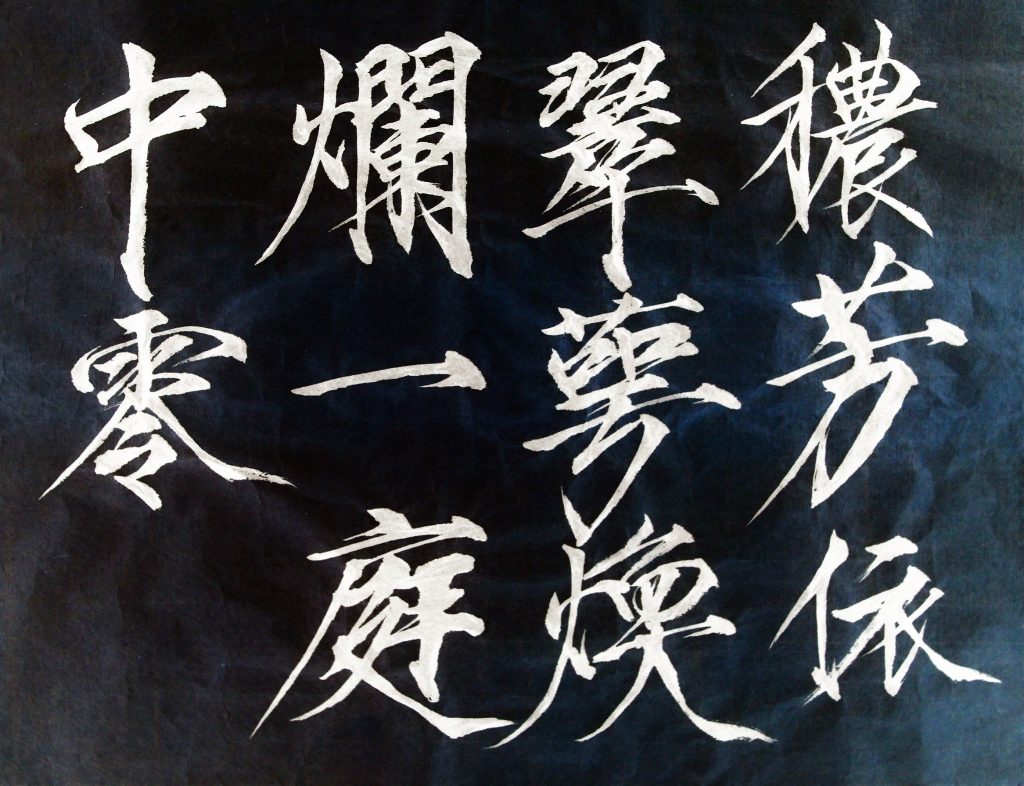 穠芳依
翠萼煥
爛一庭
中零